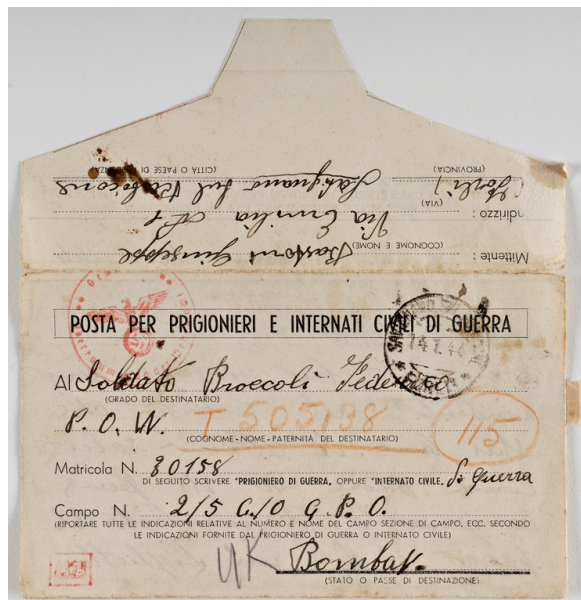 (CITTÀ O PAESE DI RESIDENZA)
(PROVINCIA)
Savignano sul Rubicone
(Forlì)
(VIA)
Indirizzo : Via Emilia
(COGNOME E NOME)
Mittente : Giuseppe
POSTA PER PRIGIONIERI E INTERNATI CIVILI DI GUERRA
Al Soldato Broccoli Federico
(GRADO DEL DESTINATARIO)
P. O. W. T 505138
115
(COGNOME - NOME - PATERNITÀ DEL DESTINATARIO)
Matricola N. 80158
DI SEGUITO SCRIVERE "PRIGIONIERO DI GUERRA, OPPURE "INTERNATO CIVILE, di Guerra
Campo N. 2/5 C/O G. P. O.
(RIPORTARE TUTTE LE INDICAZIONI RELATIVE AL NUMERO E NOME DEL CAMPO SEZIONE DI CAMPO, ECC. SECONDO
LE INDICAZIONI FORNITE DAL PRIGIONIERO DI GUERRA O INTERNATO CIVILE)
UK Bombay.
(STATO O PAESE DI DESTINAZIONE)